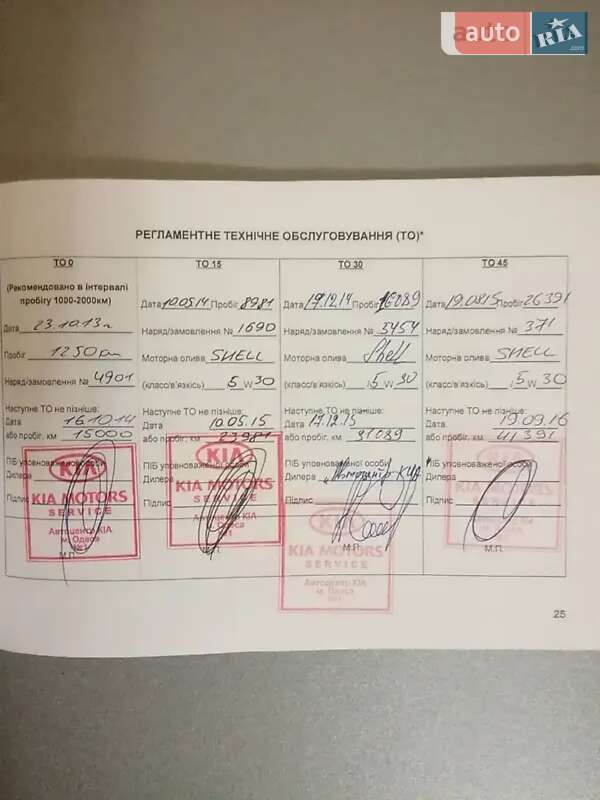 auto RIA.com
РЕГЛАМЕНТНЕ ТЕХНІЧНЕ ОБСЛУГОВУВАННЯ (ТО)*
ТО 0
(Рекомендовано в інтервалі
пробігу 1000-2000км)
Дата 23.10.13г
Пробіг 1250
Наряд/замовлення № 4901
Наступне ТО не пізніше:
Дата 16.10.14
або пробіг, км 15000
ПІБ уповноваженої особи
Дилера
Підпис
М.П.
KIA
KIA MOTORS
SERVICE
Автоцентр КІА
м. Одеса
№1
ТО 15
Дата 10.05.14 Пробіг 8981
Наряд/замовлення № 1690
Моторна олива SHELL
(класс/в'язкість) 5 W 30
Наступне ТО не пізніше:
Дата 10.05.15
або пробіг, км 23981
ПІБ уповноваженої особи
Дилера
Підпис
М.П.
KIA
KIA MOTORS
SERVICE
Автоцентр КІА
м. Одеса
№1
ТО 30
Дата 17.12.14 Пробіг 16089
Наряд/замовлення № 3454
Моторна олива Shell
(класс/в'язкість) 5 W 30
Наступне ТО не пізніше:
Дата 17.12.15
або пробіг, км 31089
ПІБ уповноваженої особи
Дилера
Підпис
М.П.
KIA
KIA MOTORS
SERVICE
Автоцентр КІА
м. Одеса
№1
ТО 45
Дата 19.08.15 Пробіг 26391
Наряд/замовлення № 371
Моторна олива SHELL
(класс/в'язкість) 5 W 30
Наступне ТО не пізніше:
Дата 19.09.16
або пробіг, км 41391
ПІБ уповноваженої особи
Дилера
Підпис
М.П.
KIA MOTORS
25